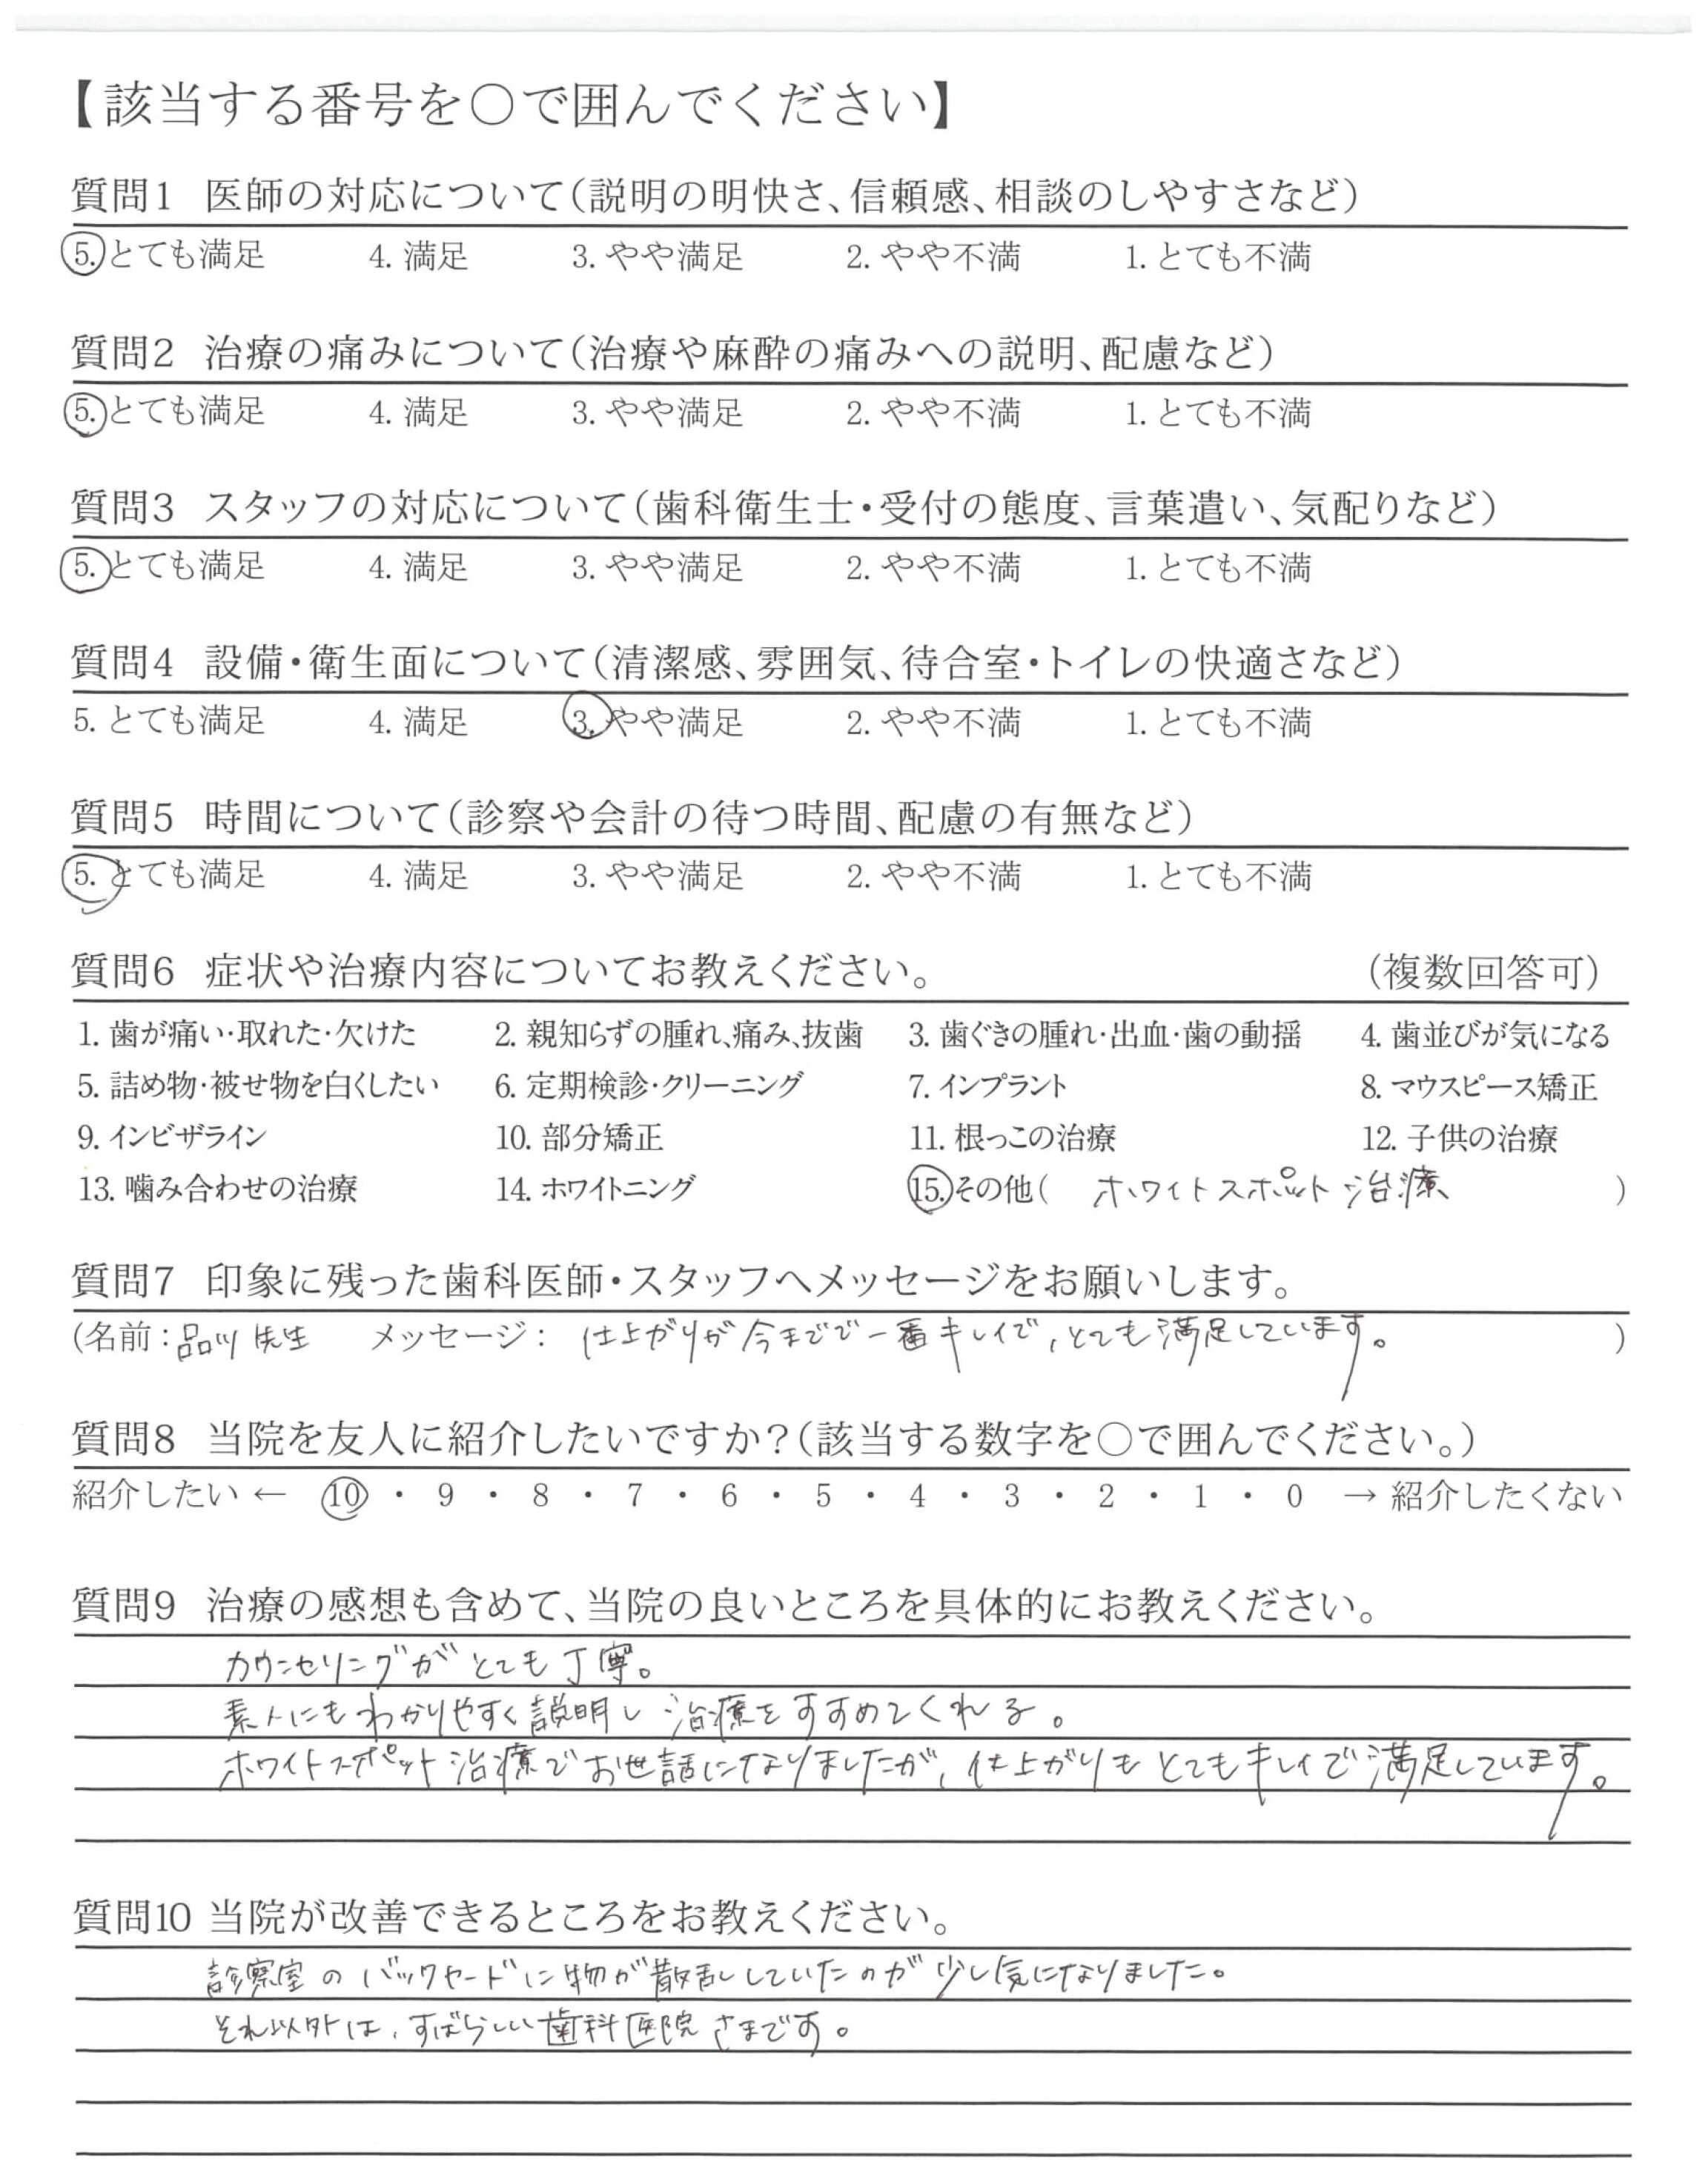 【該当する番号を○で囲んでください】
質問1 医師の対応について(説明の明快さ、信頼感、相談のしやすさなど)
5. とても満足 4. 満足 3. やや満足 2. やや不満 1. とても不満
質問2 治療の痛みについて(治療や麻酔の痛みへの説明、配慮など)
5. とても満足 4. 満足 3. やや満足 2. やや不満 1. とても不満
質問3 スタッフの対応について(歯科衛生士・受付の態度、言葉遣い、気配りなど)
5. とても満足 4. 満足 3. やや満足 2. やや不満 1. とても不満
質問4 設備・衛生面について(清潔感、雰囲気、待合室・トイレの快適さなど)
5. とても満足 4. 満足 3. やや満足 2. やや不満 1. とても不満
質問5 時間について(診察や会計の待つ時間、配慮の有無など)
5. とても満足 4. 満足 3. やや満足 2. やや不満 1. とても不満
質問6 症状や治療内容についてお教えください。 (複数回答可)
1. 歯が痛い・取れた・欠けた 2. 親知らずの腫れ、痛み、抜歯 3. 歯ぐきの腫れ・出血・歯の動揺 4. 歯並びが気になる
5. 詰め物・被せ物を白くしたい 6. 定期検診・クリーニング 7. インプラント 8. マウスピース矯正
9. インビザライン 10. 部分矯正 11. 根っこの治療 12. 子供の治療
13. 噛み合わせの治療 14. ホワイトニング 15. その他( ホワイトスポット治療 )
質問7 印象に残った歯科医師・スタッフへメッセージをお願いします。
(名前:品川先生 メッセージ: 仕上がりが今までで一番キレイで、とても満足しています。 )
質問8 当院を友人に紹介したいですか?(該当する数字を○で囲んでください。)
紹介したい ← 10 ・ 9 ・ 8 ・ 7 ・ 6 ・ 5 ・ 4 ・ 3 ・ 2 ・ 1 ・ 0 → 紹介したくない
質問9 治療の感想も含めて、当院の良いところを具体的にお教えください。
カウンセリングがとても丁寧。
素人にもわかりやすく説明し治療をすすめてくれる。
ホワイトスポット治療でお世話になりましたが、仕上がりもとてもキレイで満足しています。
質問10 当院が改善できるところをお教えください。
診察室のバックヤードに物が散乱していたのが少し気になりました。
それ以外は、すばらしい歯科医院さまです。